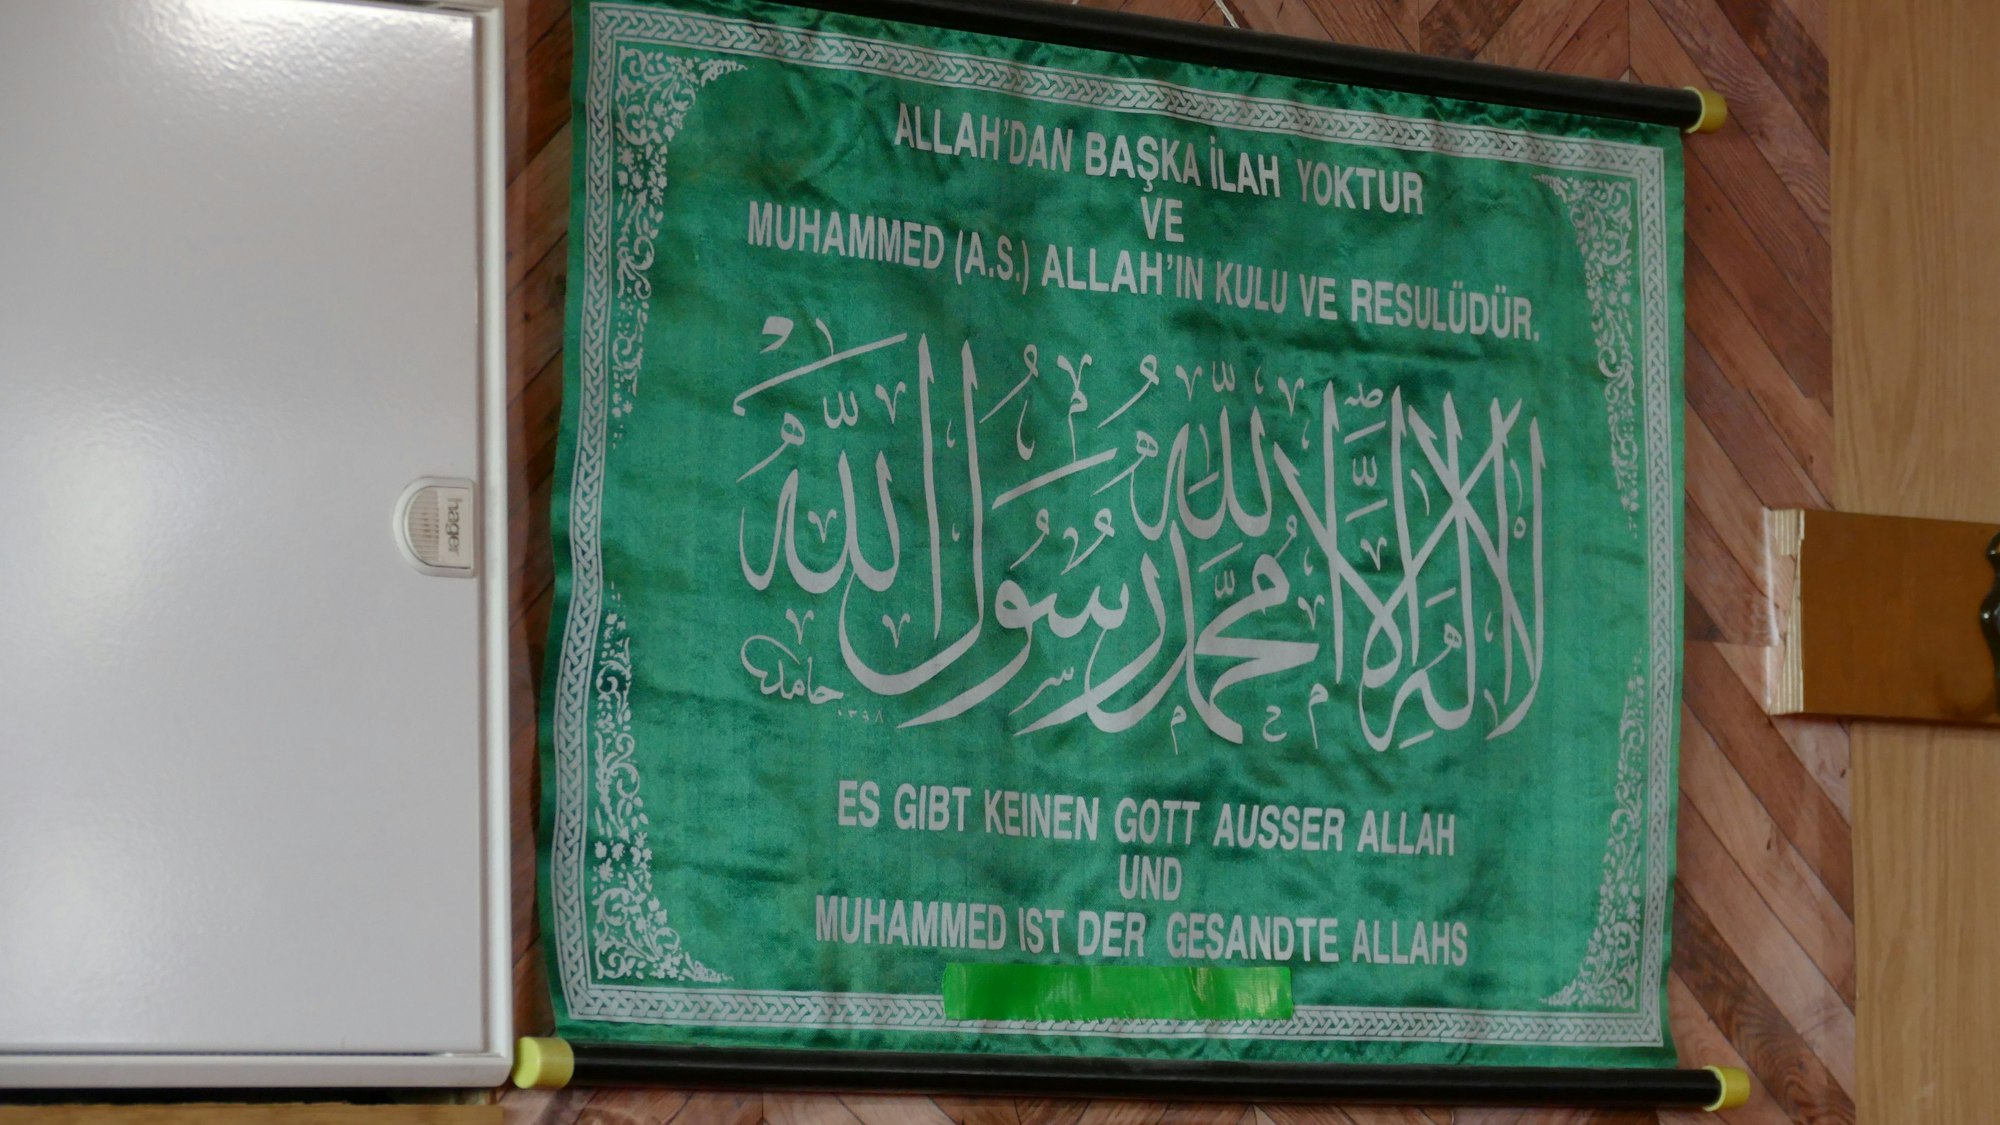 hager
ALLAH'DAN BAŞKA İLAH YOKTUR
VE
MUHAMMED (A.S.) ALLAH'IN KULU VE RESULÜDÜR.
لَا إِلٰهَ إِلَّا اللّٰهُ مُحَمَّدٌ رَسُولُ اللّٰهِ
حامد
١٣٩٨
ES GIBT KEINEN GOTT AUSSER ALLAH
UND
MUHAMMED IST DER GESANDTE ALLAHS